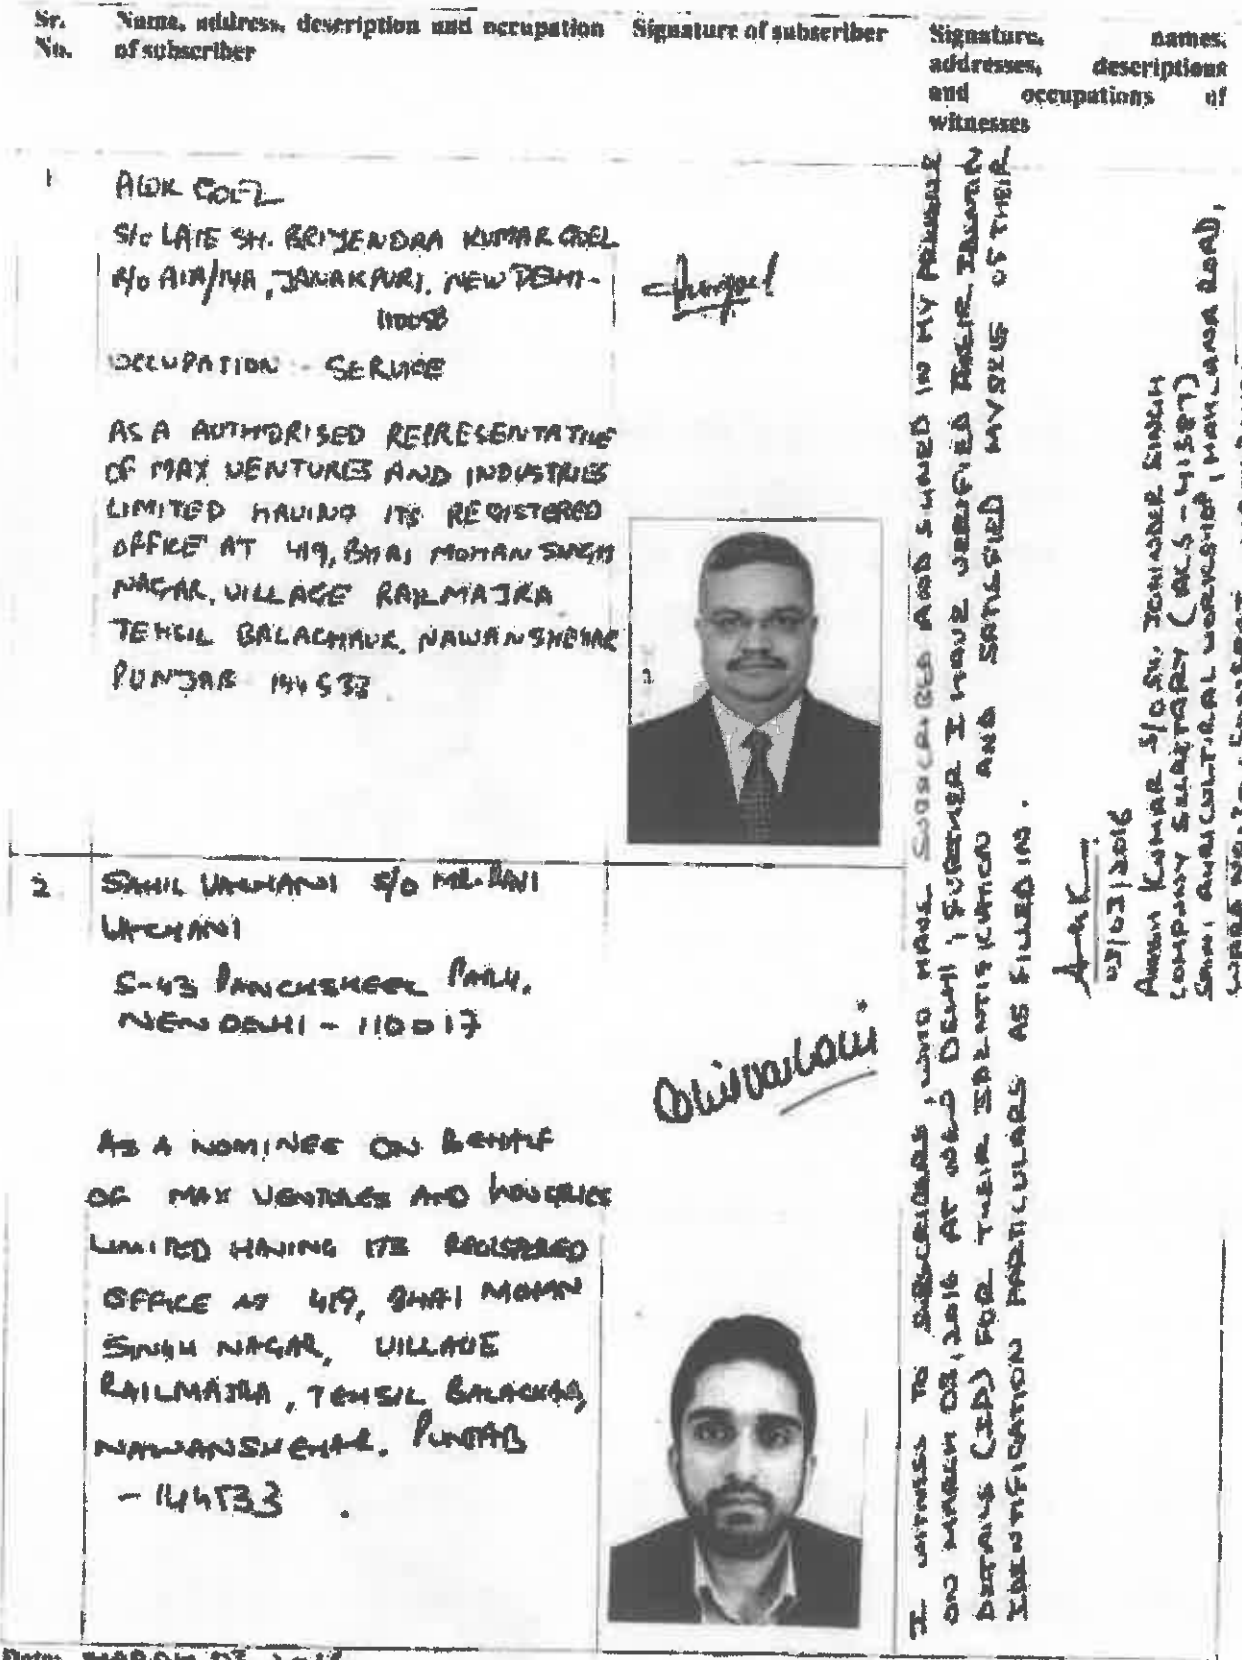 Sr. No.
Name, address, description and occupation of subscriber
Signature of subscriber
Signature, names, addresses, descriptions and occupations of witnesses
1
ALOK GOEL
S/o LATE SH. BRIJENDRA KUMAR GOEL
R/o JANAKPURI, NEW DELHI-
110058
OCCUPATION - SERVICE
AS A AUTHORISED REPRESENTATIVE
OF MAX VENTURES AND INDUSTRIES
LIMITED HAVING ITS REGISTERED
OFFICE AT 419, BHAI MOHAN SINGH
NAGAR, VILLAGE RAILMAJRA
TEHSIL BALACHAUR, NAWANSHEHAR
PUNJAB 144533
2
SAHIL VACHANI S/o MR.
VACHANI
S-43 PANCHSHEEL PARK,
NEW DELHI - 110017
AS A NOMINEE ON BEHALF
OF MAX VENTURES AND INDUSTRIES
LIMITED HAVING ITS REGISTERED
OFFICE AT 419, BHAI MOHAN
SINGH NAGAR, VILLAGE
RAILMAJRA, TEHSIL BALACHAUR,
NAWANSHEHAR. PUNJAB
- 144533.
I WITNESS TO SUBSCRIBERS, WHO HAVE SUBSCRIBED AND SIGNED IN MY PRESENCE
ON MARCH 03, 2016 AT NEW DELHI; FURTHER I HAVE VERIFIED THEIR IDENTITY
DETAILS (ID) FOR THEIR IDENTIFICATION AND SATISFIED MYSELF OF THEIR
IDENTIFICATION PARTICULARS AS FILLED IN.
03/03/2016
KUMAR S/o SH. JOGINDER SINGH
COMPANY SECRETARY (ACS - 41587)
SAINI AGRICULTURAL WORKSHOP,
WARD NO.